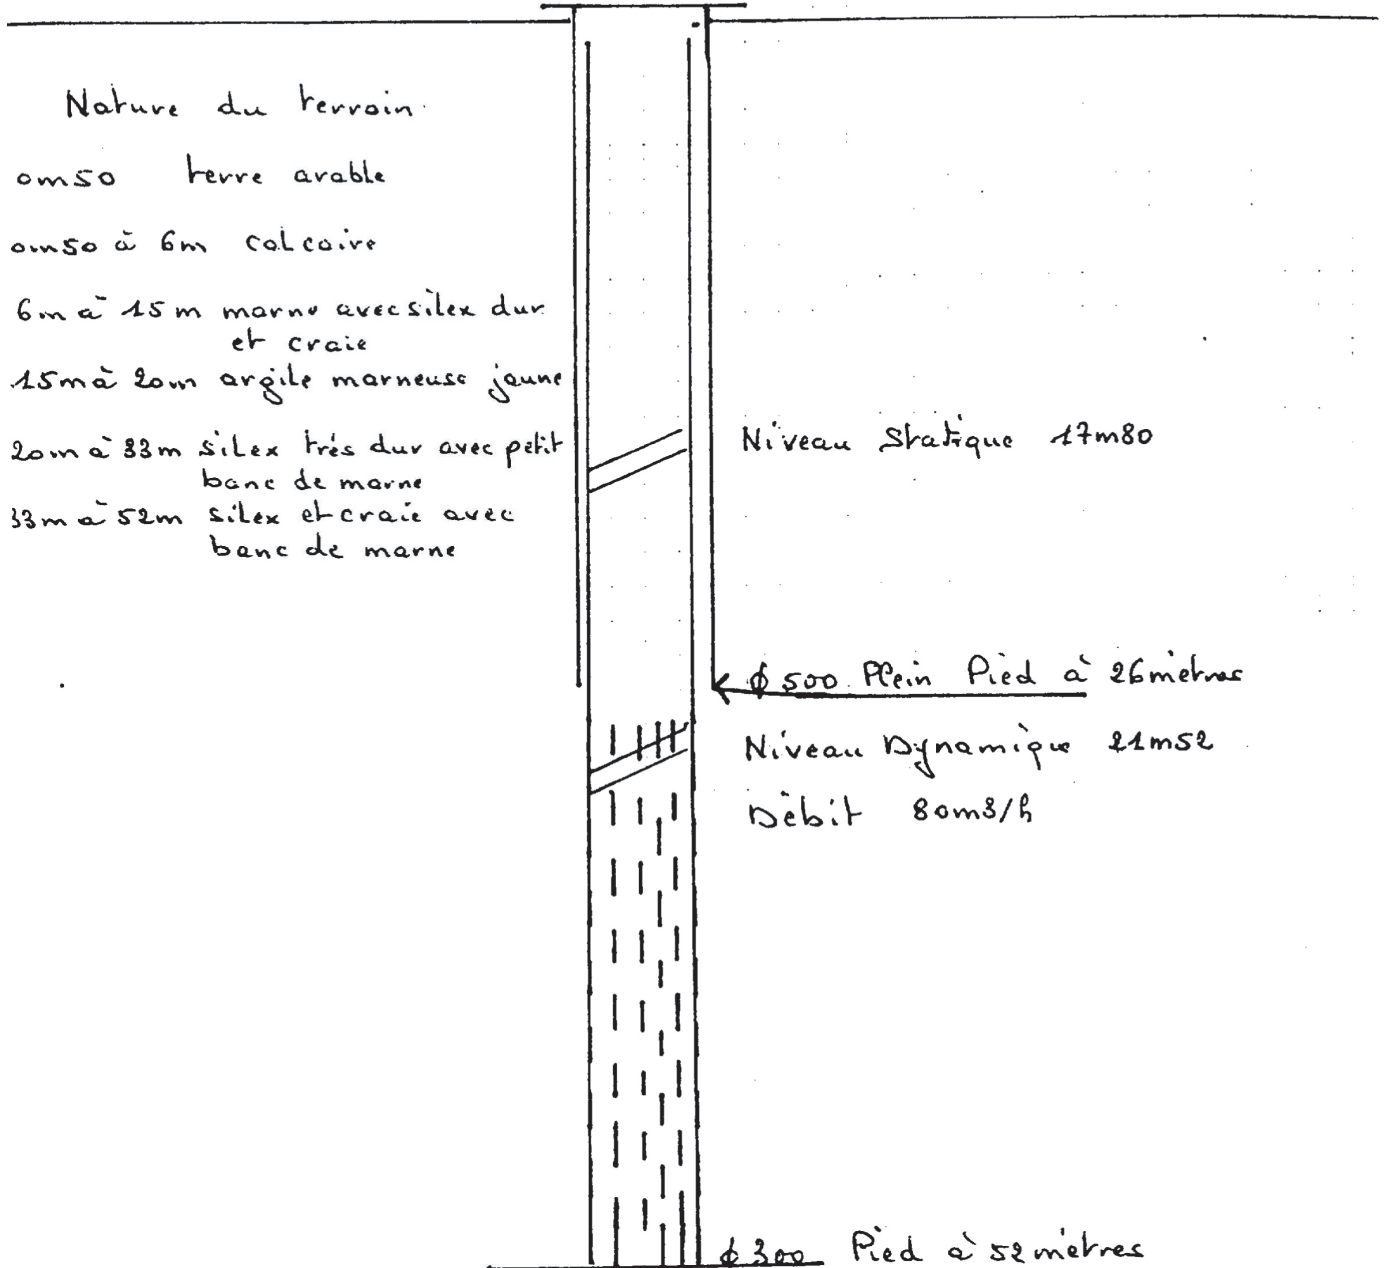 Nature du terrain
0m50 terre arable
0m50 à 6m calcaire
6m à 15m marne avec silex dur
et craie
15m à 20m argile marneuse jaune
20m à 33m silex très dur avec petit
banc de marne
33m à 52m silex et craie avec
banc de marne
Niveau Statique 17m80
ϕ 500 Plein Pied à 26 mètres
Niveau Dynamique 21m52
Dèbit 80m3/h
ϕ 300 Pied à 52 mètres